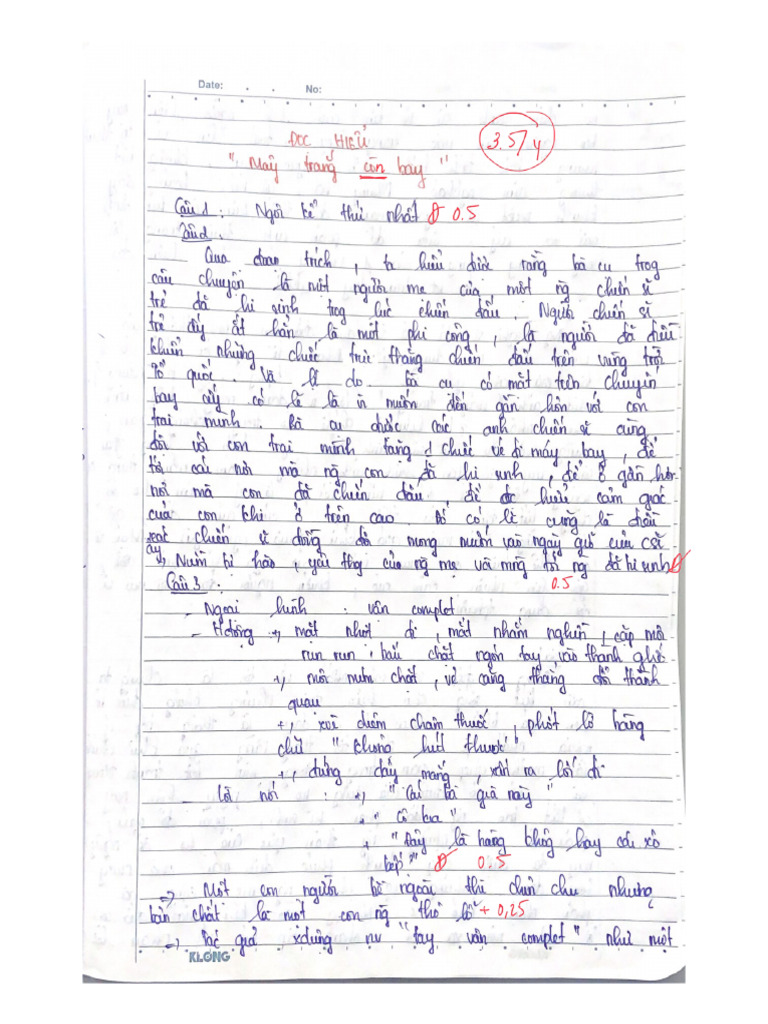 Date: No:
ĐỌC HIỂU 3.5/4
" Mây trắng còn bay "
Câu 1: Ngôi kể thứ nhất Đ 0.5
Câu 2:
Qua đoạn trích, ta hiểu được rằng bà cụ trog
câu chuyện là một người mẹ của một ng chiến sĩ
trẻ đã hi sinh trog lúc chiến đấu. Người chiến sĩ
trẻ ấy ắt hẳn là một phi công, là người đã điều
khiển những chiếc trực thăng chiến đấu trên vùng trời
Tổ quốc. Và lí do bà cụ có mặt trên chuyến
bay ấy có lẽ là vì muốn đến gần hơn với con
trai mình. Bà cụ được các anh chiến sĩ cùng
đội với con trai mình tặng 1 chiếc vé đi máy bay, để
tới cái nơi mà ng con đã hi sinh, để ở gần hơn
nơi mà con đã chiến đấu, để đc hiểu cảm giác
của con khi ở trên cao. Đó có lẽ cũng là điều
chiến sĩ đồng đội mong muốn vào ngày giỗ của csĩ
ấy → Niềm tự hào, yêu thg của ng mẹ với ng đã hi sinh Đ
Câu 3: 0.5
- Ngoại hình: vận complet
- Hđộng +, mặt nhợt đi, mắt nhắm nghiền, cặp môi
run run, bấu chặt ngón tay vào thành ghế
+, môi mím chặt, vẻ căng thẳng đổi thành
quau
+, xoè diêm châm thuốc, phớt lờ hàng
chữ "Không hút thuốc"
+, đứng dậy, mắng, xấn ra lối đi
- Lời nói: +, "Cái bà già này"
+ "Cô kia"
+ "Đây là hàng không hay cái xó
bếp?" Đ 0.5
→ Một con người bề ngoài thì chỉn chu nhưng
bản chất là một con ng thô lỗ + 0,25
→ Tác giả xdựng nv "tay vận complet" như một
KLONG